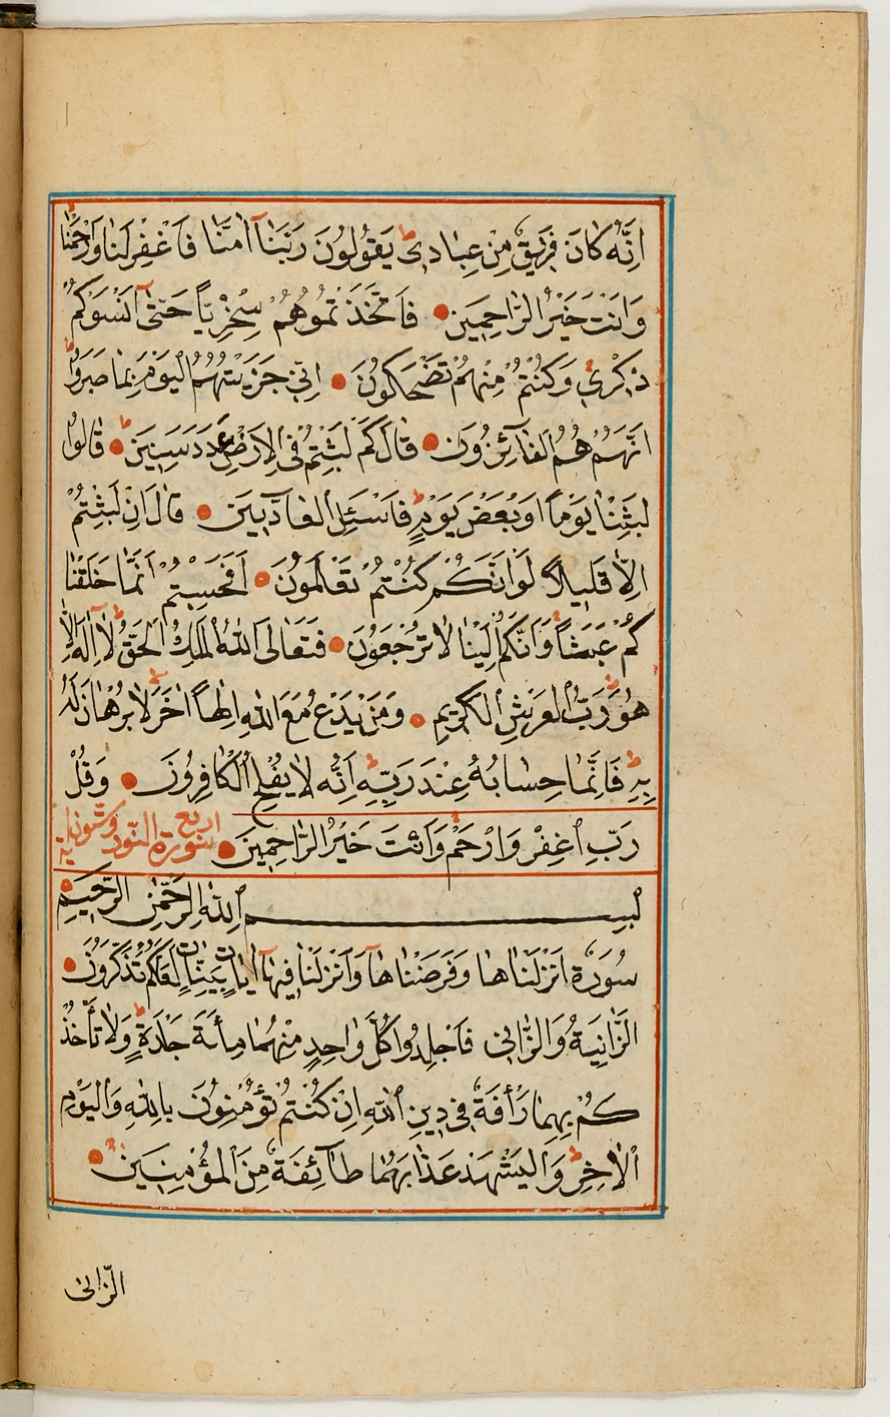 اِنَّهُ كَانَ فَرِيقٌ مِنْ عِبَادِي يَقُولُونَ رَبَّنَا آمَنَّا فَاغْفِرْ لَنَا وَارْحَمْنَا
وَاَنْتَ خَيْرُ الرَّاحِمِينَ فَاتَّخَذْتُمُوهُمْ سِخْرِيًّا حَتَّى اَنْسَوْكُمْ
ذِكْرِي وَكُنْتُمْ مِنْهُمْ تَضْحَكُونَ اِنِّي جَزَيْتُهُمُ الْيَوْمَ بِمَا صَبَرُوا
اَنَّهُمْ هُمُ الفَآئِزُونَ قَالَ كَمْ لَبِثْتُمْ فِي الْاَرْضِ عَدَدَ سِنِينَ قَالُوا
لَبِثْنَا يَوْمًا اَوْ بَعْضَ يَوْمٍ فَاسْئَلِ العَآدِّينَ قَالَ اِنْ لَبِثْتُمْ
اِلَّا قَلِيلًا لَوْ اَنَّكُمْ كُنْتُمْ تَعْلَمُونَ اَفَحَسِبْتُمْ اَنَّمَا خَلَقْنَا
كُمْ عَبَثًا وَاَنَّكُمْ اِلَيْنَا لَا تُرْجَعُونَ فَتَعَالَى اللّٰهُ الْمَلِكُ الْحَقُّ لَآ اِلٰهَ اِلَّا
هُوَ رَبُّ الْعَرْشِ الْكَرِيمِ وَمَنْ يَدْعُ مَعَ اللّٰهِ اِلٰهًا اٰخَرَ لَا بُرْهَانَ لَهُ
بِهِ فَاِنَّمَا حِسَابُهُ عِنْدَ رَبِّهِ اِنَّهُ لَا يُفْلِحُ الْكَافِرُونَ وَقُلْ
رَبِّ اغْفِرْ وَارْحَمْ وَاَنْتَ خَيْرُ الرَّاحِمِينَ سورة النّور اربع وستون اية
بِسْمِ اللّٰهِ الرَّحْمٰنِ الرَّحِيمِ
سُورَةٌ اَنْزَلْنَاهَا وَفَرَضْنَاهَا وَاَنْزَلْنَا فِيهَآ اٰيَاتٍ بَيِّنَاتٍ لَعَلَّكُمْ تَذَكَّرُونَ
الزَّانِيَةُ وَالزَّانِي فَاجْلِدُوا كُلَّ وَاحِدٍ مِنْهُمَا مِأئَةَ جَلْدَةٍ وَلَا تَأْخُذْ
كُمْ بِهِمَا رَأْفَةٌ فِي دِينِ اللّٰهِ اِنْ كُنْتُمْ تُؤْمِنُونَ بِاللّٰهِ وَالْيَوْمِ
الْاٰخِرِ وَالْيَشْهَدْ عَذَابَهُمَا طَآئِفَةٌ مِنَ الْمُؤْمِنِينَ
الزَّانِي